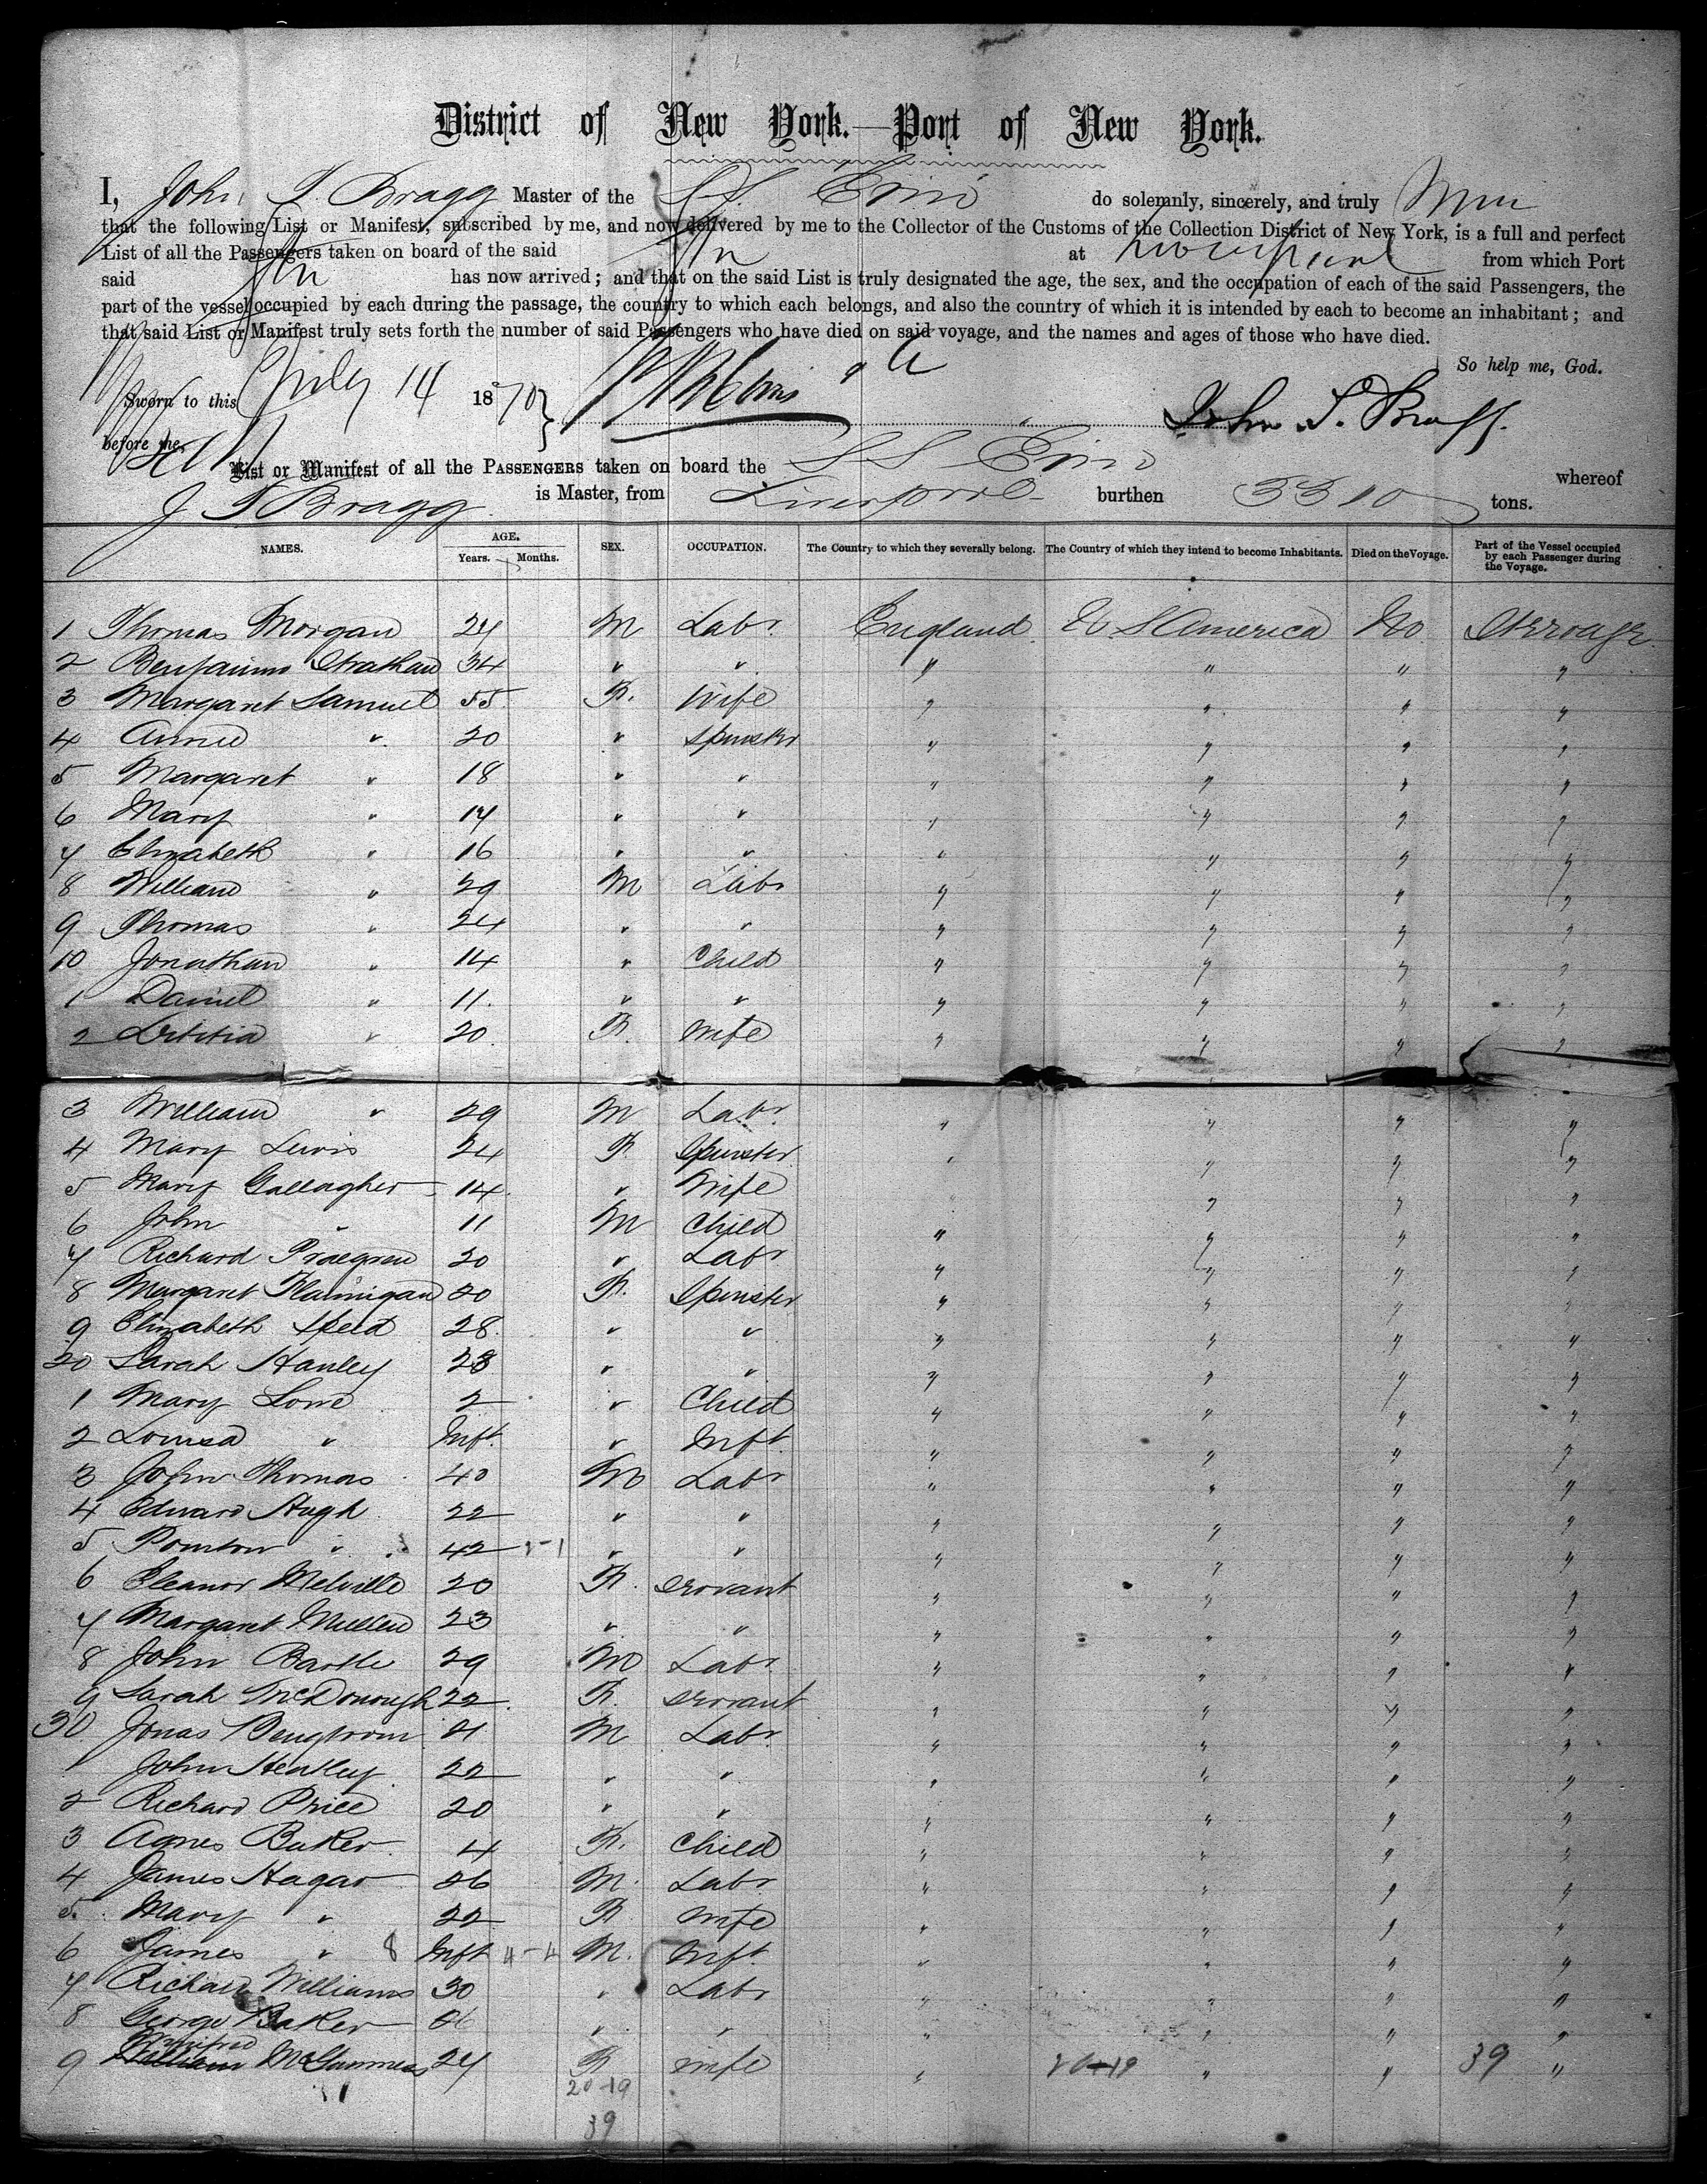 District of New York.—Port of New York.
I, John T. Bragg Master of the S.S. Erin do solemnly, sincerely, and truly
that the following List or Manifest, subscribed by me, and now delivered by me to the Collector of the Customs of the Collection District of New York, is a full and perfect
List of all the Passengers taken on board of the said at Liverpool from which Port
said has now arrived; and that on the said List is truly designated the age, the sex, and the occupation of each of the said Passengers, the
part of the vessel occupied by each during the passage, the country to which each belongs, and also the country of which it is intended by each to become an inhabitant; and
that said List or Manifest truly sets forth the number of said Passengers who have died on said voyage, and the names and ages of those who have died.
So help me, God.
Sworn to this 14 1870
before me, John T. Bragg.
List or Manifest of all the PASSENGERS taken on board the SS Erin whereof
J T Bragg is Master, from Liverpool burthen 3310 tons.
NAMES. AGE. Years. Months. SEX. OCCUPATION. The Country to which they severally belong. The Country of which they intend to become Inhabitants. Died on the Voyage. Part of the Vessel occupied by each Passenger during the Voyage.
1 Thomas Morgan 24 M Labr. England U S America No Steerage
2 Benjamin 34 " " " " " "
3 Margaret Samuel 55 F. Wife " " " "
4 Annie " 20 " Spinster " " " "
5 Margaret " 18 " " " " " "
6 Mary " 17 " " " " " "
7 Elizabeth " 16 " " " " " "
8 William " 29 M Labr " " " "
9 Thomas " 24 " " " " " "
10 Jonathan " 14 " Child " " " "
1 Daniel " 11. " " " " " "
2 Letitia " 20. F. Wife " " " "
3 William " 29 M Labr. " " " "
4 Mary Lewis 24 F Spinster " " " "
5 Mary Gallagher 14. " Wife " " "
6 John " 11 M Child " " " "
7 Richard 20 " Labr " " " "
8 Margaret Flannigan 20 F. Spinster " " " "
9 Elizabeth Speed 28. " " " " " "
20 Sarah Hanley 28 " " " " " "
1 Mary Lowe 2 " Child " " " "
2 Louisa " Inft. " Inft. " " " "
3 John Thomas 40 M Labr " " " "
4 Edward Hugh 22 " " " " " "
5 " 42 1-1 " " " " " "
6 Eleanor Melville 20 F. Servant " " " "
7 Margaret Mullen 23 " " " " " "
8 John Bartle 29 M Labr " " " "
9 Sarah McDonough 22. F. Servant " " " "
30 Jonas Bengtrom 21 M Labr. " " " "
1 John Heatley 22 " " " " " "
2 Richard Price 20 " " " " " "
3 Agnes Baker 4 F. Child " " " "
4 James Hagar 26 M. Labr " " " "
5. Mary " 22 F Wife " " " "
6 James " 8 Inft 4-4 M. Inft. " " " "
7 Richard Williams 30 " Labr " " " "
8 George Baker 26 " " " " " "
Winifred
9 William McGuinness 24 F Wife " 20-19 " " 39 "
20-19
39